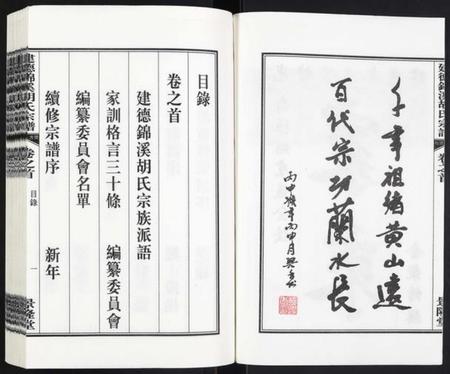 建德錦溪胡氏宗譜
卷之首
景隆堂
千年祖緒黄山遠
百代宗功蘭水長
目錄
卷之首
建德錦溪胡氏宗族派語
家訓格言三十條 編纂委員會
編纂委員會名單
續修宗譜序 新年
建德錦溪胡氏宗譜
卷之首
目錄
一
景隆堂